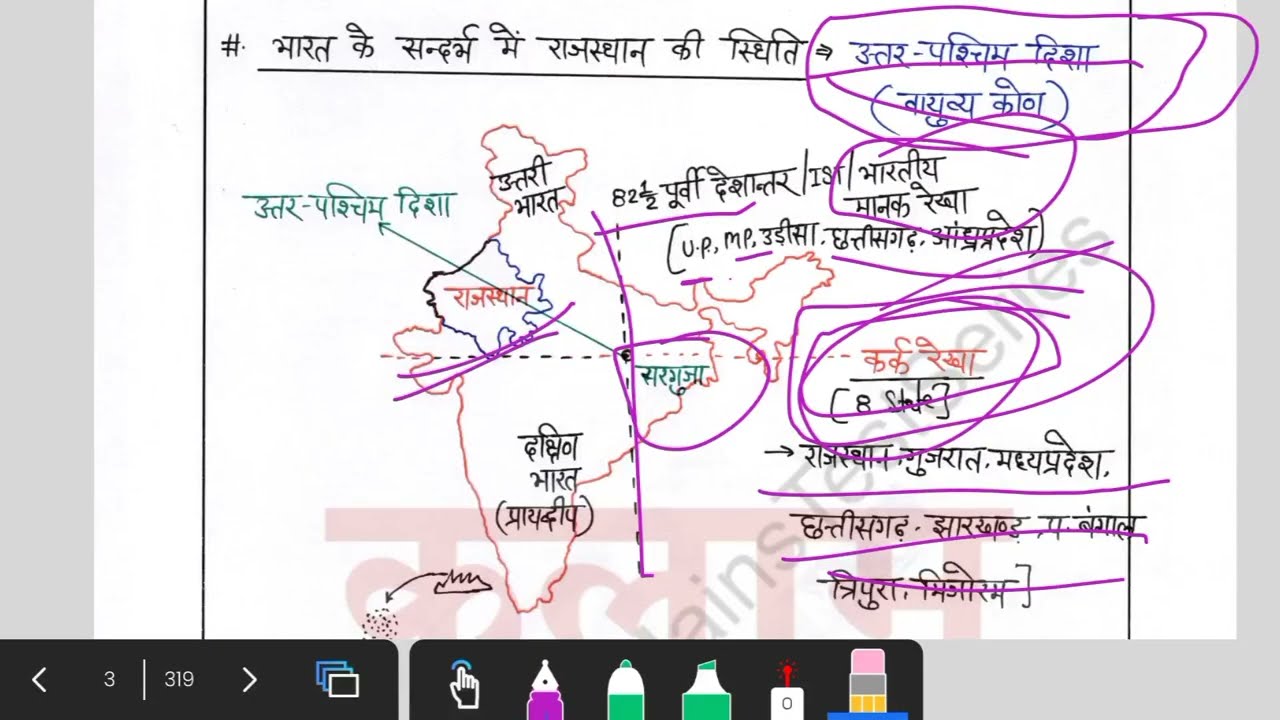 #. भारत के सन्दर्भ में राजस्थान की स्थिति ⇒ उत्तर-पश्चिम दिशा
(वायुव्य कोण)
उत्तरी
भारत
82½ पूर्वी देशान्तर / IST / भारतीय
मानक रेखा
[U.P., MP, उड़ीसा, छत्तीसगढ़, आंध्रप्रदेश)
उत्तर-पश्चिम दिशा
राजस्थान
सरगुजा
कर्क रेखा
[8 State]
→ राजस्थान, गुजरात, मध्यप्रदेश,
छत्तीसगढ़, झारखण्ड, प. बंगाल
त्रिपुरा, मिजोरम]
दक्षिण
भारत
(प्रायद्वीप)
कलाम
3 | 319
0